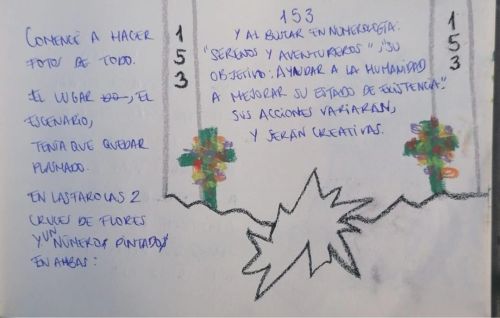 COMENCÉ A HACER
FOTOS DE TODO.
EL LUGAR, EL
ESCENARIO,
TENÍA QUE QUEDAR
PLASMADO.
EN LAS FAROLAS 2
CRUCES DE FLORES
Y UN NÚMERO PINTADO
EN AMBAS:
1
5
3
153
Y AL BUSCAR EN NUMEROLOGÍA:
"SERENOS Y AVENTUREROS", "SU
OBJETIVO: AYUDAR A LA HUMANIDAD
A MEJORAR SU ESTADO DE EXISTENCIA."
SUS ACCIONES VARIARAN,
Y SERÁN CREATIVAS.
1
5
3